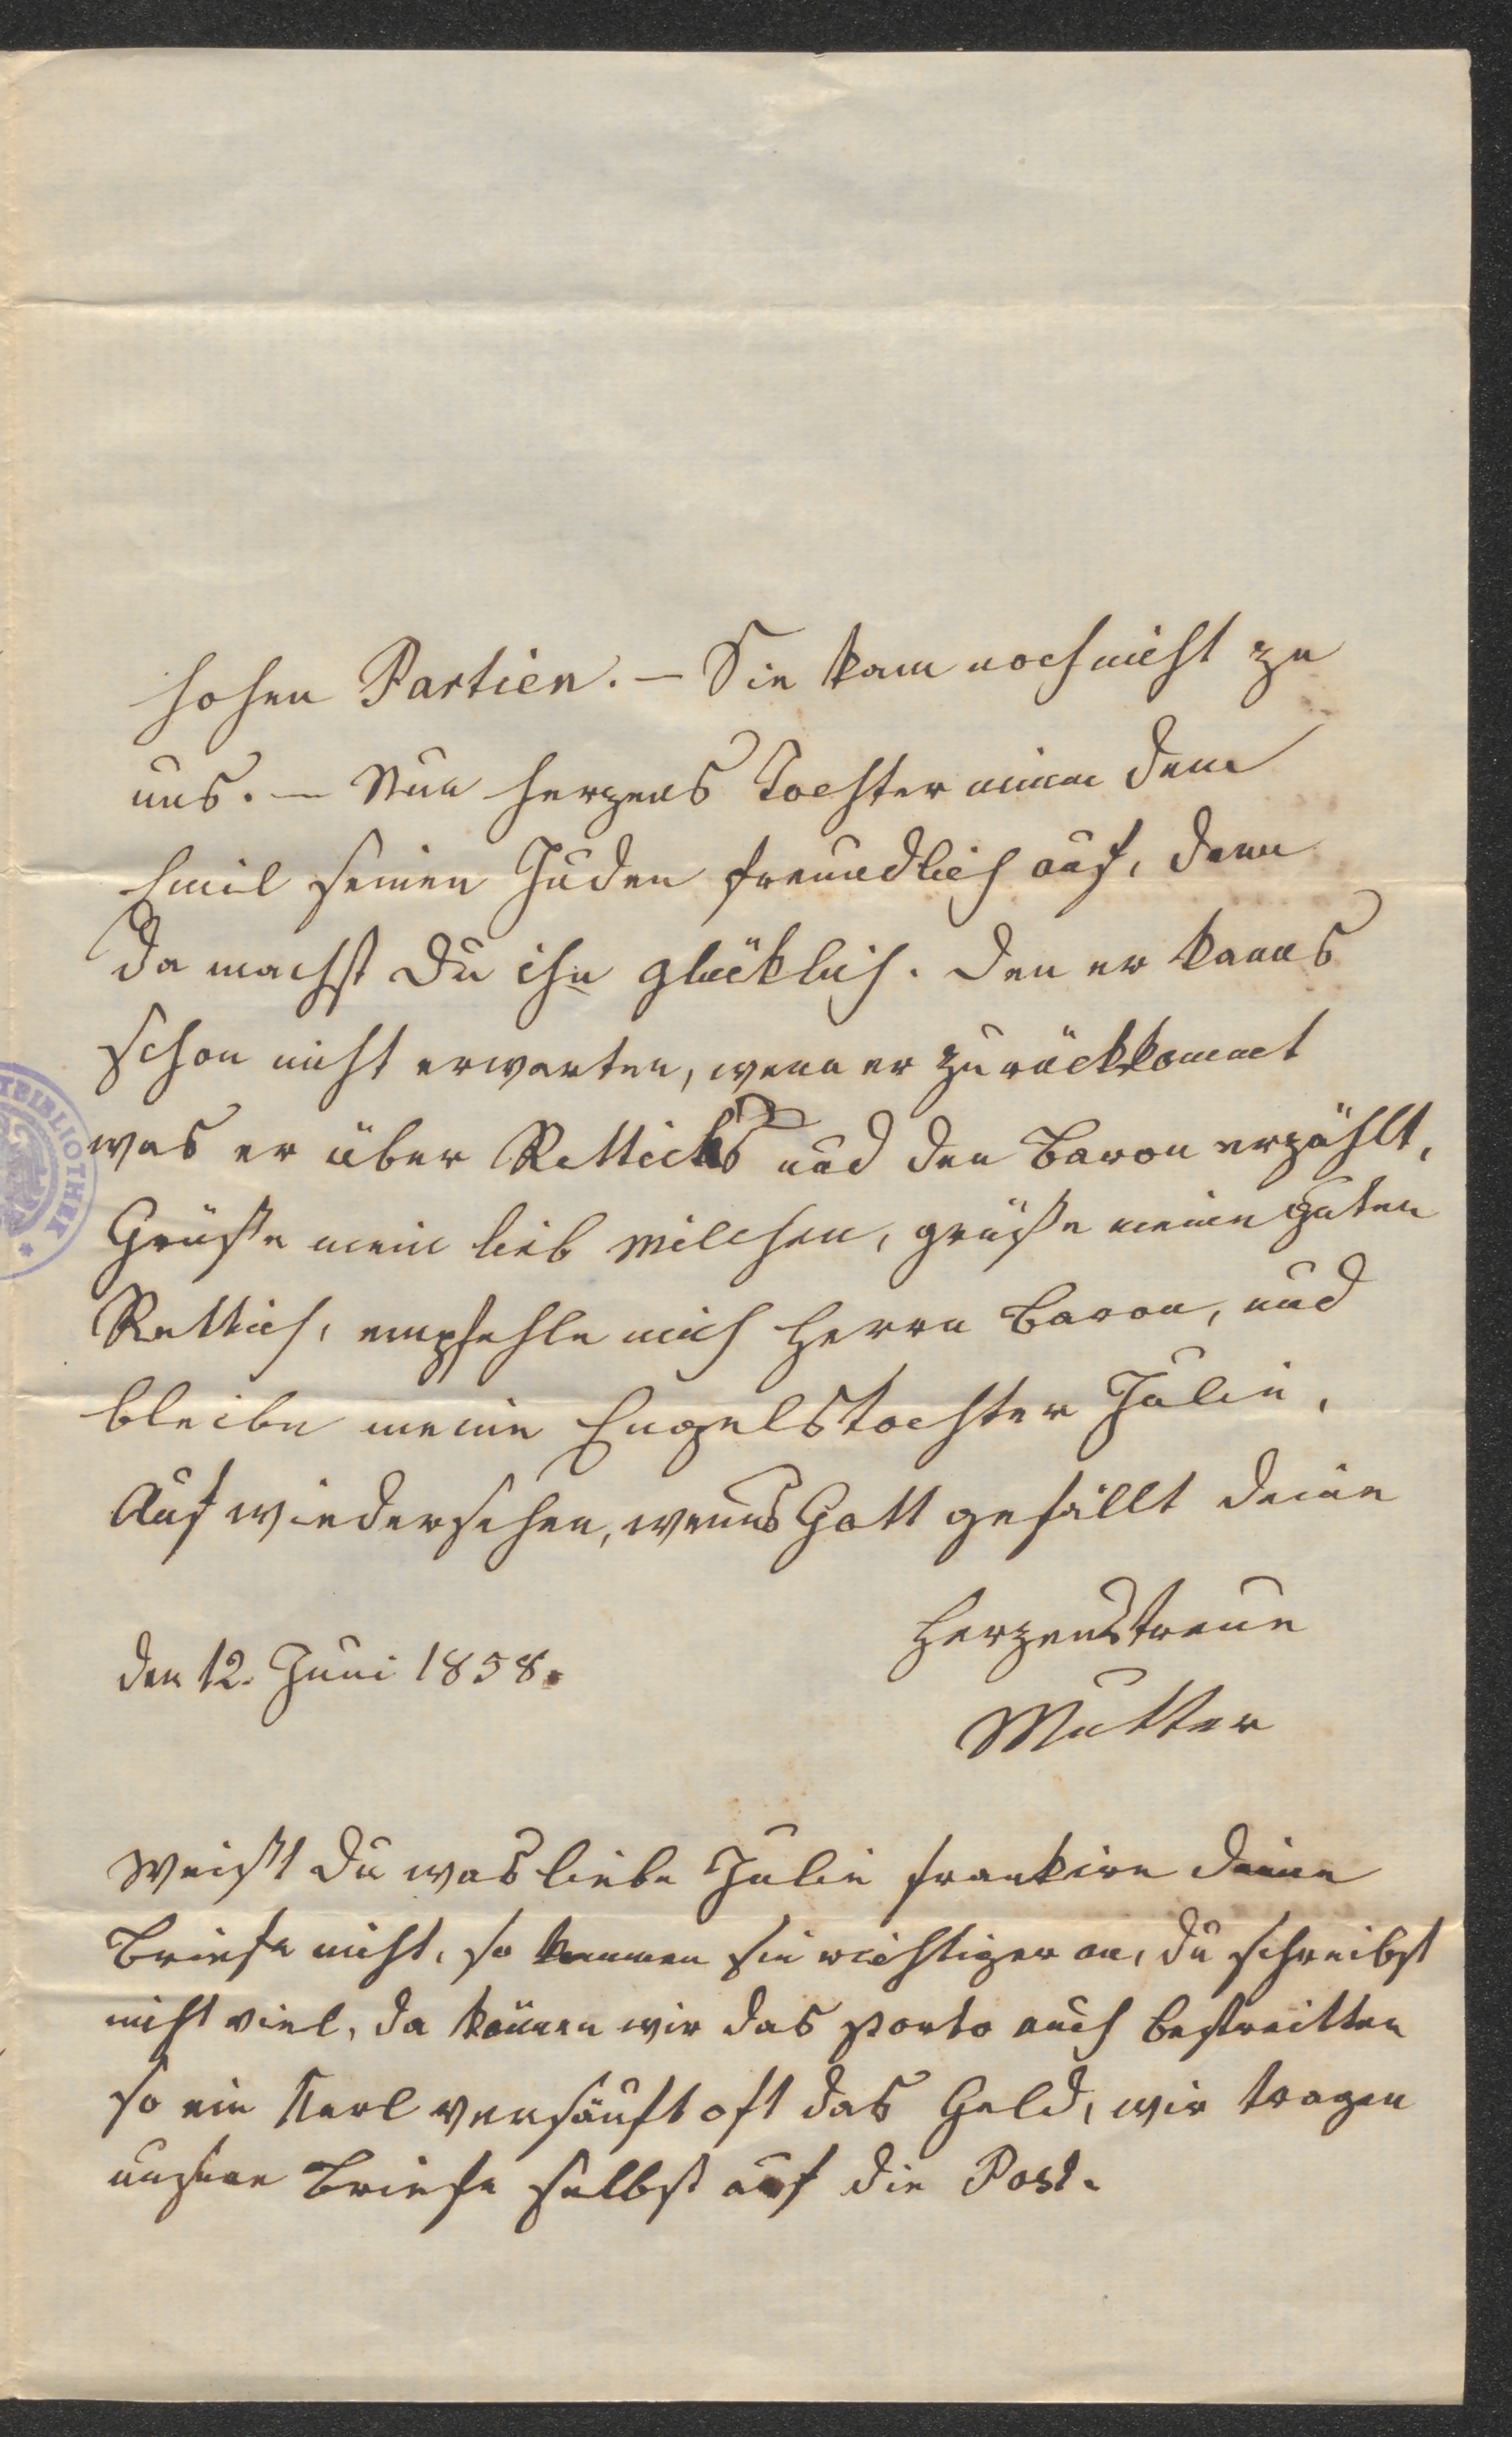 hohen Partien. – Sie kam noch nicht zu
uns. – Nun herzens Tochter nimm dem
Emil seinen Juden freundlich auf, denn
da machst Du ihn glücklich. Den er kanns
schon nicht erwarten, wenn er zurückkommt
was er über Retticks und den Baron erzählt,
Grüße mein lieb Milchen, grüße meine guten
Rettich, empfehle mich Herrn Baron, und
bleibe meine Engelstochter Julie,
Auf wiedersehen, wenns Gott gefällt deine
Herzenstreue
den 12. Juni 1858.
Mutter
Weißt du was liebe Julie frankire deine
Briefe nicht, so kommen sie richtiger an, du schreibst
nicht viel, da können wir das Porto auch bestreitten
so ein Kerl versäuft oft das Geld, wir tragen
unsere Briefe selbst auf die Post.
TBIBLIOTHEK